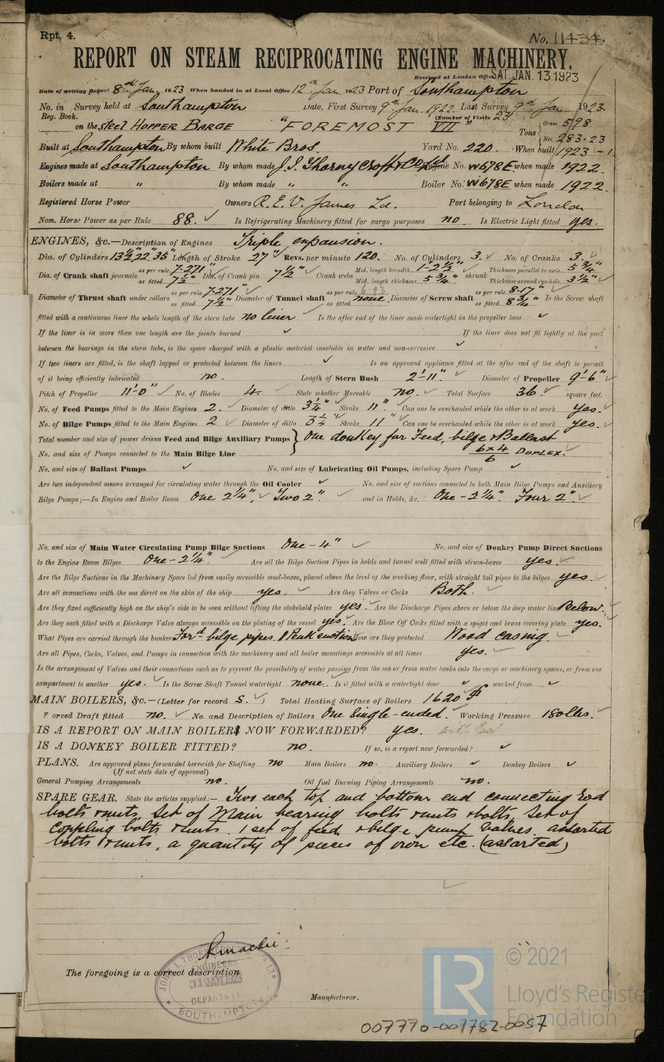 Rpt. 4.
No. 11434.
REPORT ON STEAM RECIPROCATING ENGINE MACHINERY.
Received at London Office SAT. JAN. 13 1923
Date of writing Report 8th Jan 1923 When handed in at Local Office 12th Jan. 1923 Port of Southampton
No. in Survey held at Southampton Date, First Survey 9th Jan. 1922. Last Survey 9th Jan 1923.
Reg. Book. (Number of Visits 23)
on the Steel Hopper Barge "FOREMOST VII" Tons Gross 598
Net 283.23
Built at Southampton By whom built White Bros. Yard No. 220. When built 1923-1
Engines made at Southampton By whom made J.I. Thornycroft & Co Ld. Engine No. W678E when made 1922.
Boilers made at " By whom made " " Boiler No. W678E when made 1922.
Registered Horse Power Owners R.E.V. James Ld. Port belonging to London
Nom. Horse Power as per Rule 88. Is Refrigerating Machinery fitted for cargo purposes no. Is Electric Light fitted yes.
ENGINES, &c.—Description of Engines Triple expansion.
Dia. of Cylinders 13½ 22. 35" Length of Stroke 27" Revs. per minute 120. No. of Cylinders 3. No. of Cranks 3.
Dia. of Crank shaft journals as per rule 7.271" as fitted 7½" Dia. of Crank pin 7½" Crank webs Mid. length breadth 1-2½" Mid. length thickness 5¾" shrunk Thickness parallel to axis 5¾" Thickness around eyehole 3½"
Diameter of Thrust shaft under collars as per rule 7.271" as fitted 7½" Diameter of Tunnel shaft as per rule 6.93 as fitted none. Diameter of Screw shaft as per rule 8.17" as fitted 8¾" Is the Screw shaft
fitted with a continuous liner the whole length of the stern tube no liner Is the after end of the liner made watertight in the propeller boss
If the liner is in more than one length are the joints burned If the liner does not fit tightly at the part
between the bearings in the stern tube, is the space charged with a plastic material insoluble in water and non-corrosive
If two liners are fitted, is the shaft lapped or protected between the liners Is an approved appliance fitted at the after end of the shaft to permit
of it being efficiently lubricated no. Length of Stern Bush 2'-11" Diameter of Propeller 9'-6"
Pitch of Propeller 11'-0" No. of Blades 4. State whether Moveable no. Total Surface 36 square feet.
No. of Feed Pumps fitted to the Main Engines 2. Diameter of ditto 3¼" Stroke 11" Can one be overhauled while the other is at work Yes.
No. of Bilge Pumps fitted to the Main Engines 2 Diameter of ditto 3¼" Stroke 11" Can one be overhauled while the other is at work Yes.
Total number and size of power driven Feed and Bilge Auxiliary Pumps One donkey for Feed, bilge & Ballast
No. and size of Pumps connected to the Main Bilge Line 6x4/6 DUPLEX.
No. and size of Ballast Pumps No. and size of Lubricating Oil Pumps, including Spare Pump
Are two independent means arranged for circulating water through the Oil Cooler No. and size of suctions connected to both Main Bilge Pumps and Auxiliary
Bilge Pumps;—In Engine and Boiler Room One 2¼", Two 2" and in Holds, &c. One-2¼" Four 2"
No. and size of Main Water Circulating Pump Bilge Suctions One-4" No. and size of Donkey Pump Direct Suctions
to the Engine Room Bilges One-2¼" Are all the Bilge Suction Pipes in holds and tunnel well fitted with strum-boxes yes.
Are the Bilge Suctions in the Machinery Space led from easily accessible mud-boxes, placed above the level of the working floor, with straight tail pipes to the bilges yes.
Are all connections with the sea direct on the skin of the ship yes. Are they Valves or Cocks Both.
Are they fixed sufficiently high on the ship's side to be seen without lifting the stokehold plates yes. Are the Discharge Pipes above or below the deep water line Below.
Are they each fitted with a Discharge Valve always accessible on the plating of the vessel yes. Are the Blow Off Cocks fitted with a spigot and brass covering plate yes.
What Pipes are carried through the bunkers For'd bilge pipes & Peak suction How are they protected Wood casing.
Are all Pipes, Cocks, Valves, and Pumps in connection with the machinery and all boiler mountings accessible at all times yes.
Is the arrangement of Valves and their connections such as to prevent the possibility of water passing from the sea or from water tanks into the cargo or machinery spaces, or from one
compartment to another yes. Is the Screw Shaft Tunnel watertight none. Is it fitted with a watertight door worked from
MAIN BOILERS, &c.—(Letter for record S.) Total Heating Surface of Boilers 1620
Forced Draft fitted no. No. and Description of Boilers One Single-ended. Working Pressure 180 lbs.
IS A REPORT ON MAIN BOILERS NOW FORWARDED? yes.
IS A DONKEY BOILER FITTED? no. If so, is a report now forwarded?
PLANS. Are approved plans forwarded herewith for Shafting no Main Boilers no. Auxiliary Boilers Donkey Boilers
(If not state date of approval)
General Pumping Arrangements no. Oil fuel Burning Piping Arrangements no.
SPARE GEAR. State the articles supplied:— Two each top and bottom end connecting rod
bolts & nuts, Set of Main bearing bolts & nuts & bolts, Set of
coupling bolts & nuts. 1 set of feed & bilge pump valves. assorted
bolts & nuts, a quantity of pieces of iron etc. (assorted)
The foregoing is a correct description
Manufacturer.
ENGINEERS
DEPARTMENT
SOUTHAMPTON
© 2021
LR
Lloyd's Register
Foundation
007770-007782-0057